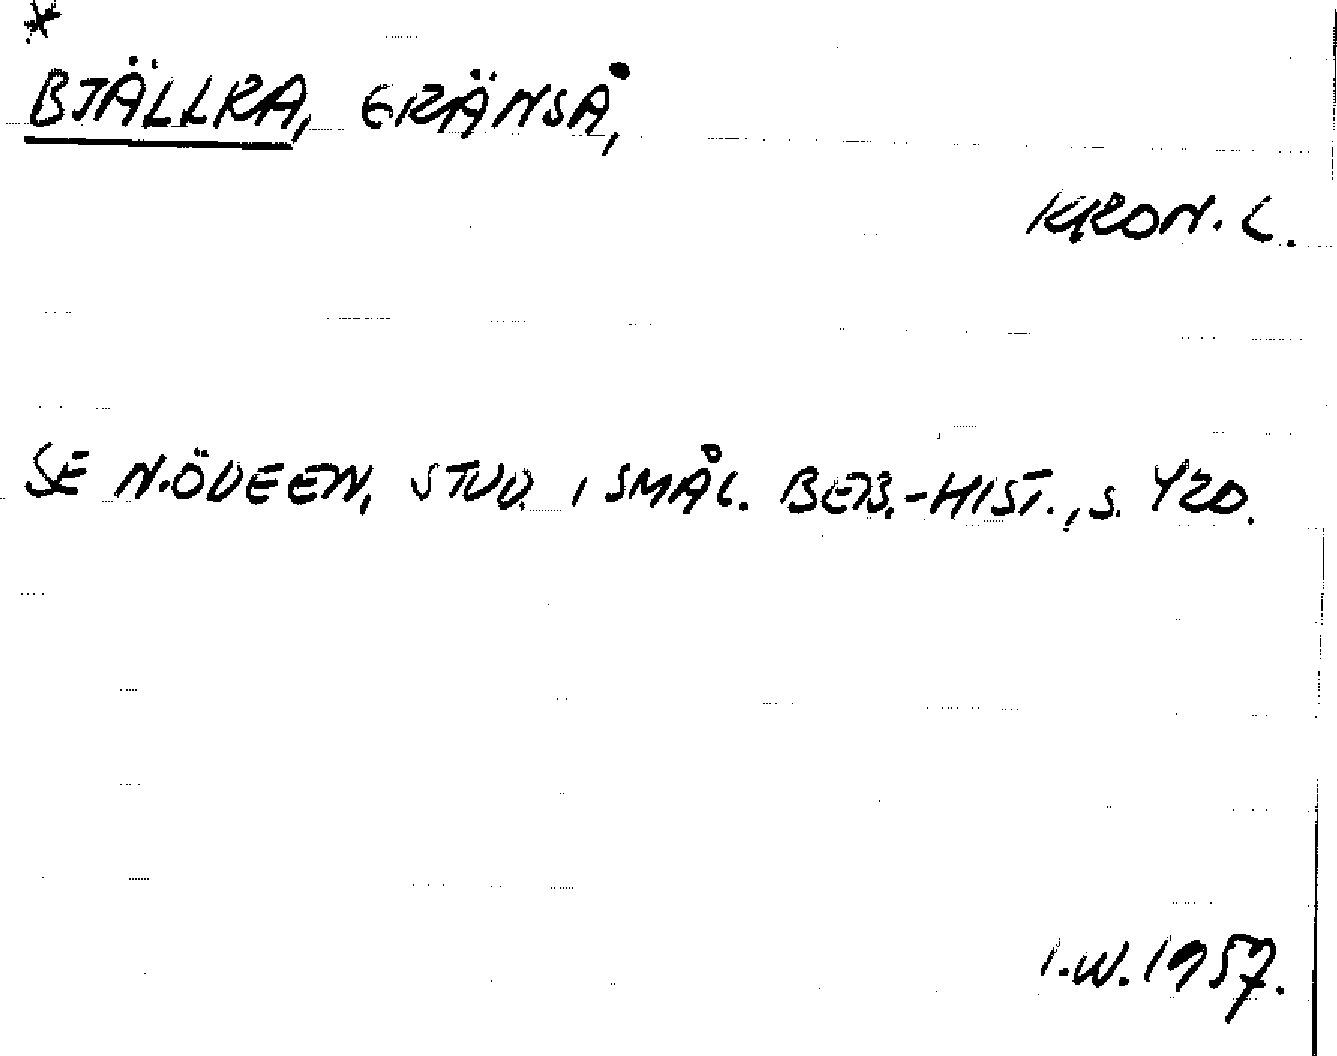 *
BJÄLLRA, GRÄNSÅ,
KRON. L.
SE N.ÖDEEN, STUD. I SMÅL. BEB.-HIST., S. 420.
I.W. 1957.